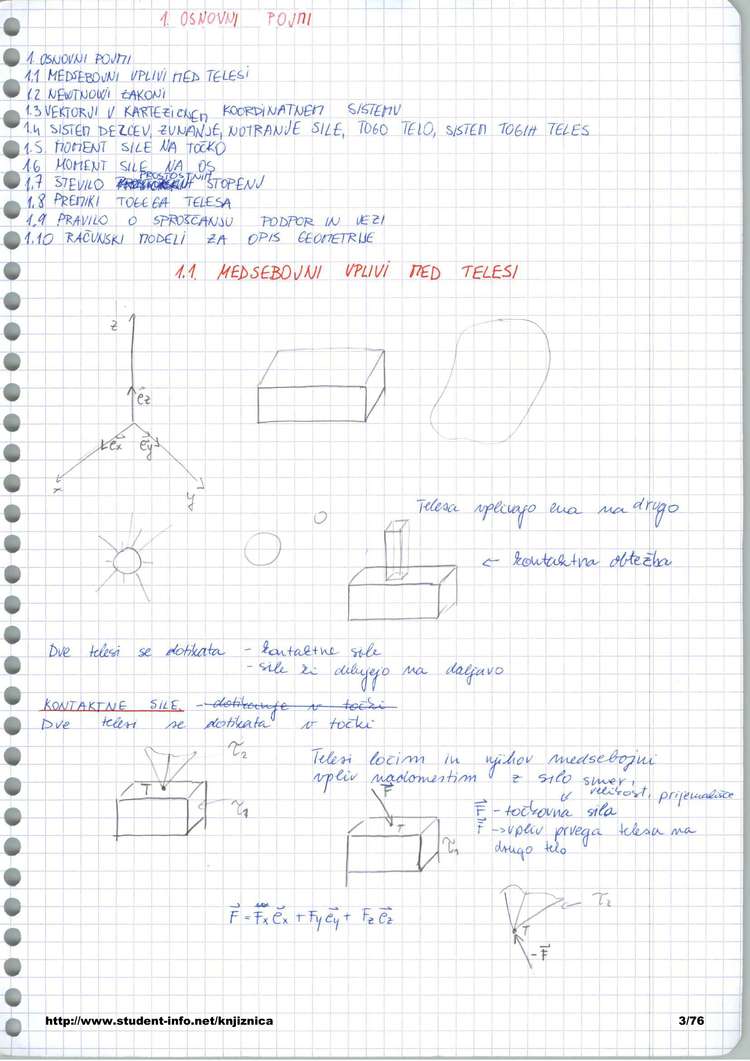 1. OSNOVNI POJMI
1. OSNOVNI POJMI
1.1 MEDSEBOJNI VPLIVI MED TELESI
1.2 NEWTNOWI ZAKONI
1.3 VEKTORJI V KARTEZIČNEM KOORDINATNEM SISTEMU
1.4 SISTEM DELCEV, ZUNANJE, NOTRANJE SILE, TOGO TELO, SISTEM TOGIH TELES
1.5. MOMENT SILE NA TOČKO
1.6 MOMENT SILE NA OS
1.7 ŠTEVILO PROSTOSTNIH STOPENJ
1.8 PREMIKI TOGEGA TELESA
1.9 PRAVILO O SPROŠČANJU PODPOR IN VEZI
1.10 RAČUNSKI MODELI ZA OPIS GEOMETRIJE
1.1. MEDSEBOJNI VPLIVI MED TELESI
z
e⃗z
e⃗x e⃗y
x
y
Telesa vplivajo ena na drugo
← kontaktna obtežba
Dve telesi se dotikata - kontaktne sile
- sile ki delujejo na daljavo
KONTAKTNE SILE - dotikanje v točki
Dve telesi se dotikata v točki
τ2
T
τ1
Telesi ločim in njihov medsebojni
vpliv nadomestim z silo smer,
velikost, prijemališče
F⃗
T
τ1
F⃗ - točkovna sila
F⃗ → vpliv prvega telesa na
drugo telo
F⃗ = Fx e⃗x + Fy e⃗y + Fz e⃗z
τ2
T
-F⃗
http://www.student-info.net/knjiznica
3/76